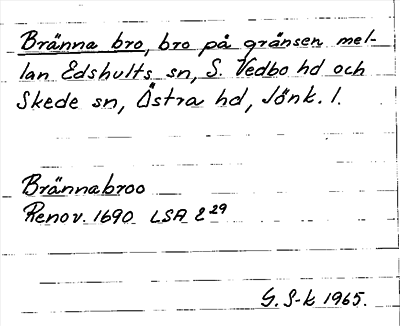 Bränna bro, bro på gränsen mel-
lan Edshults sn, S. Vedbo hd och
Skede sn, Östra hd, Jönk. l.
Brännabroo
Renov. 1690 LSA E 29
G. S-k 1965.